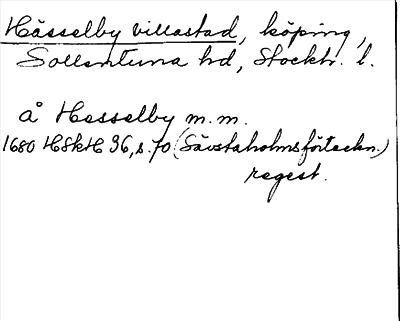 Hässelby villastad, köping,
Sollentuna hd, Stockh. l.
å Hesselby m.m.
1680 HSkH 36, s. 70 (Sävstaholmsförteckn.)
regest.